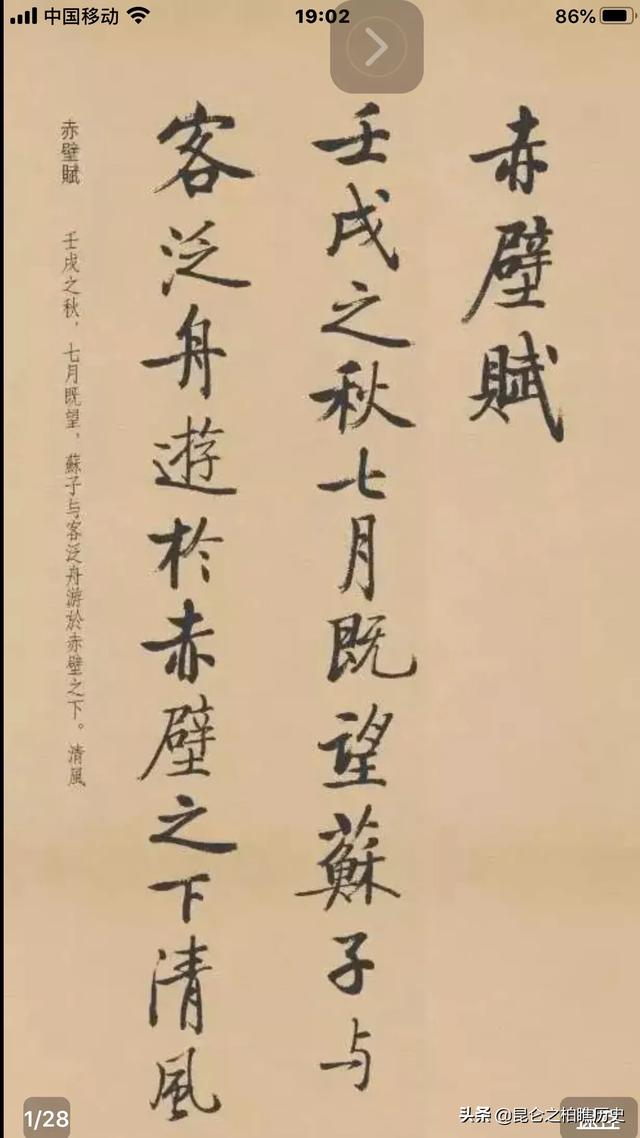 中国移动
19:02
86%
赤壁賦
壬戌之秋七月既望蘇子与
客泛舟遊於赤壁之下清風
赤壁賦 壬戌之秋，七月既望，蘇子与客泛舟游於赤壁之下。清風
1/28
头条 @昆仑之柏瞧历史